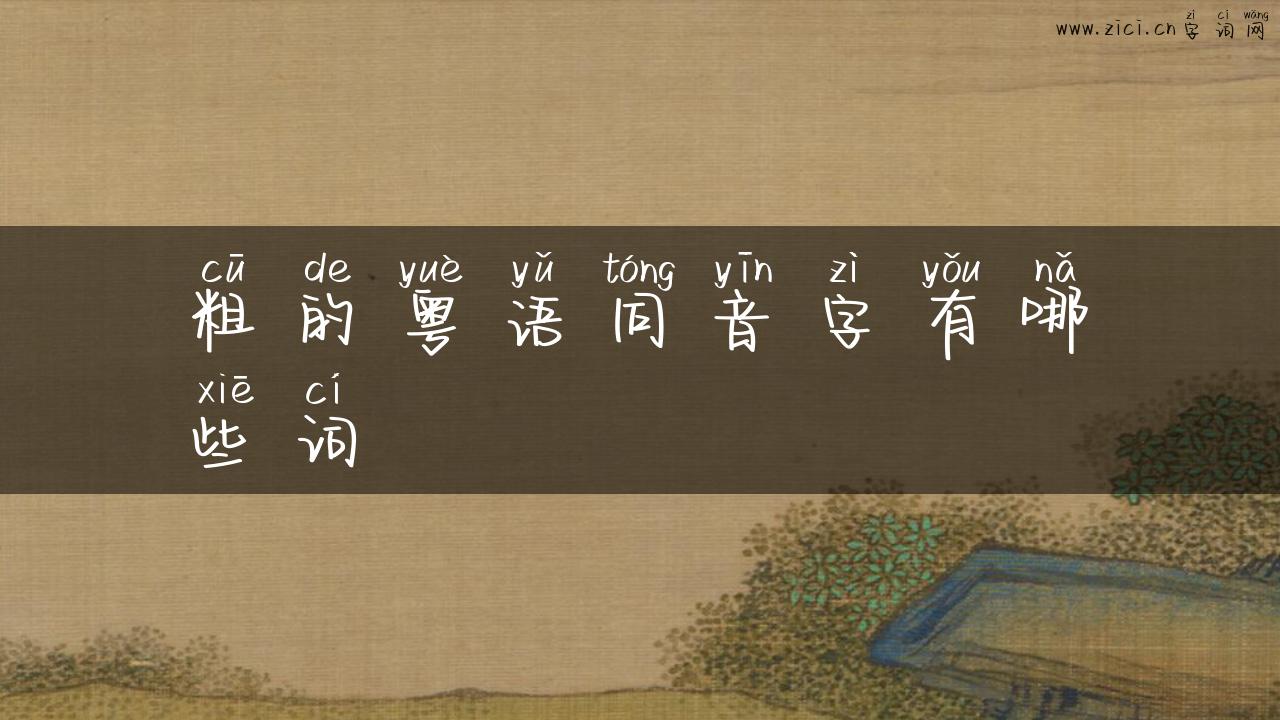 zì cí wǎng
www.zici.cn 字词网
cū de yuè yǔ tóng yīn zì yǒu nǎ
粗的粤语同音字有哪
xiē cí
些词